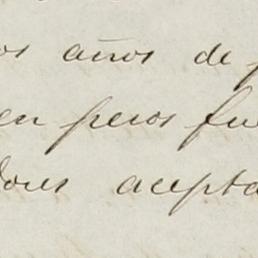 os años de
en pesos fu
dores acepta